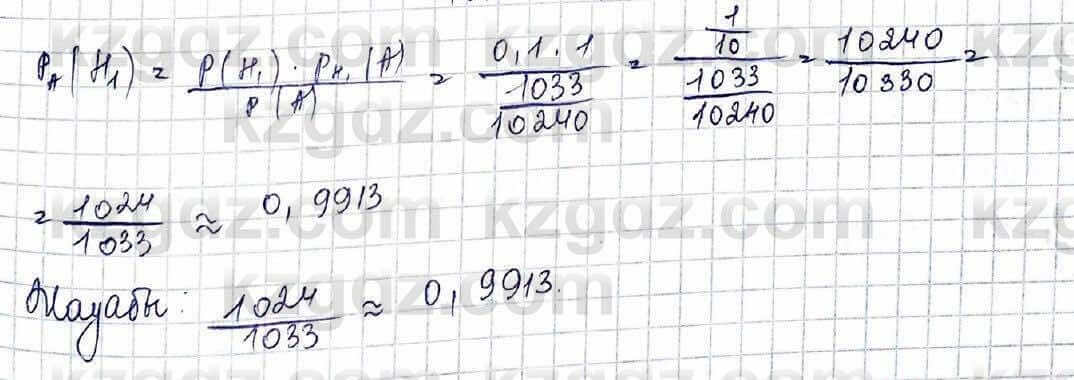 P_A(H_1) = P(H_1) · P_{H_1}(A) / P(A) = 0,1 · 1 / (1033/10240) = (1/10) / (1033/10240) = 10240/10330 =
= 1024/1033 ≈ 0,9913
Жауабы: 1024/1033 ≈ 0,9913.
kzgdz.com